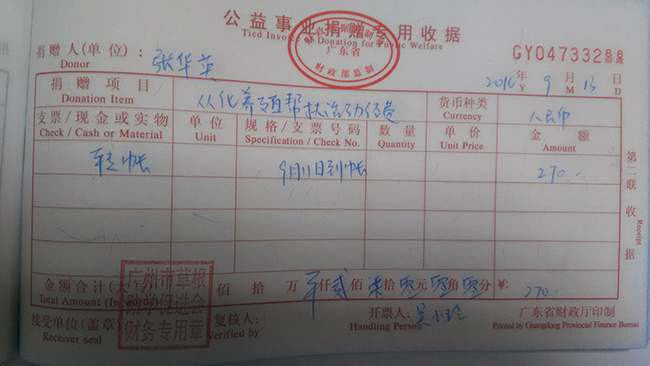 公益事业捐赠专用收据
Tied Invoice Donation for Public Welfare
广东省
财政部监制
GY04733288
捐赠人(单位)：张华英
Donor
2016年9月13日
Y M D
捐赠项目 从化养殖帮扶 货币种类 人民币
Donation Item Currency
支票/现金或实物 单位 规格/支票号码 数量 单价 金额
Check / Cash or Material Unit Specification / Check No. Quantity Unit Price Amount
转帐 9月11日到帐 270.-
第二联 收据 Receipt
金额合计(大 佰 拾 万 仟贰佰柒拾零元零角零分 ¥: 270.-
Total Amount (In w
广州市草根
助学促进会
财务专用章
接受单位(盖章 复核人: 开票人: 吴小玲 广东省财政厅印制
Receiver seal Verified by Handling Person Printed by Guangdong Provincial Finance Bureau